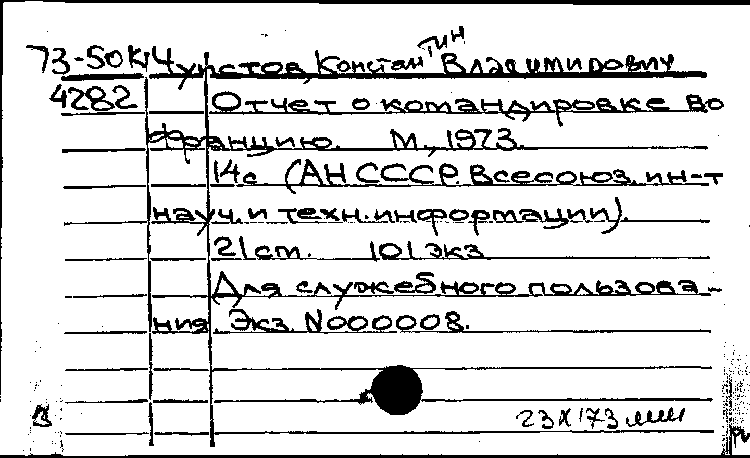 73-50К Чупстов, Константин Владимирович
4282 Отчет о командировке во
Францию. М., 1973.
14с. (АН СССР. Всесоюз. ин-т
науч. и техн. информации).
21 ст. 101 экз
Для служебного пользова-
ния. Экз. N000008.
23 X 173